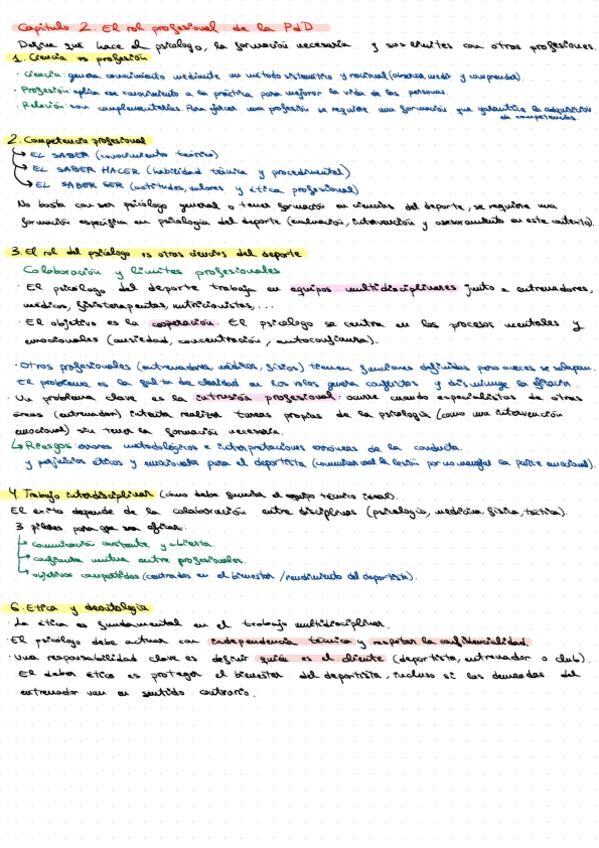 Capítulo 2. El rol profesional de la PdD
Define qué hace el psicólogo, la formación necesaria y sus límites con otras profesiones.
1. Ciencia vs profesión
· Ciencia: genera conocimiento mediante un método sistemático y racional (observa, medir y comprender).
· Profesión: aplica ese conocimiento a la práctica para mejorar la vida de las personas.
· Relación: son complementarias. Para ejercer una profesión se requiere una formación que garantice la adquisición
de competencias.
2. Competencia profesional
EL SABER (conocimiento teórico)
EL SABER HACER (habilidad técnica y procedimental)
EL SABER SER (actitudes, valores y ética profesional)
No basta con ser psicólogo general o tener formación en ciencias del deporte, se requiere una
formación específica en psicología del deporte (evaluación, intervención y asesoramiento en este contexto).
3. El rol del psicólogo vs otras ciencias del deporte
Colaboración y límites profesionales
· El psicólogo del deporte trabaja en equipos multidisciplinares junto a entrenadores,
médicos, fisioterapeutas, nutricionistas, ...
· El objetivo es la cooperación. El psicólogo se centra en los procesos mentales y
emocionales (ansiedad, concentración, autoconfianza).
· Otros profesionales (entrenadores, médicos, fisios) tienen funciones definidas pero a veces se solapan.
El problema es la falta de claridad en los roles genera conflictos y disminuye la eficacia.
· Un problema clave es la intrusión profesional: ocurre cuando especialistas de otras
áreas (entrenador) intenta realizar tareas propias de la psicología (como una intervención
emocional) sin tener la formación necesaria.
Riesgos: errores metodológicos e interpretaciones erróneas de la conducta.
y perjuicios éticos y emocionales para el deportista (comunicar mal la lesión por no manejar la parte emocional).
4. Trabajo interdisciplinar (cómo debe funcionar el equipo técnico ideal).
El éxito depende de la colaboración entre disciplinas (psicología, medicina, física, táctica).
3 pilares para que sea eficaz:
comunicación constante y abierta.
confianza mutua entre profesionales.
objetivos compartidos (centrados en el bienestar / rendimiento del deportista).
6. Ética y deontología
· La ética es fundamental en el trabajo multidisciplinar.
· El psicólogo debe actuar con independencia técnica y respetar la confidencialidad.
· Una responsabilidad clave es definir quién es el cliente (deportista, entrenador o club).
El deber ético es proteger el bienestar del deportista, incluso si las demandas del
entrenador van en sentido contrario.